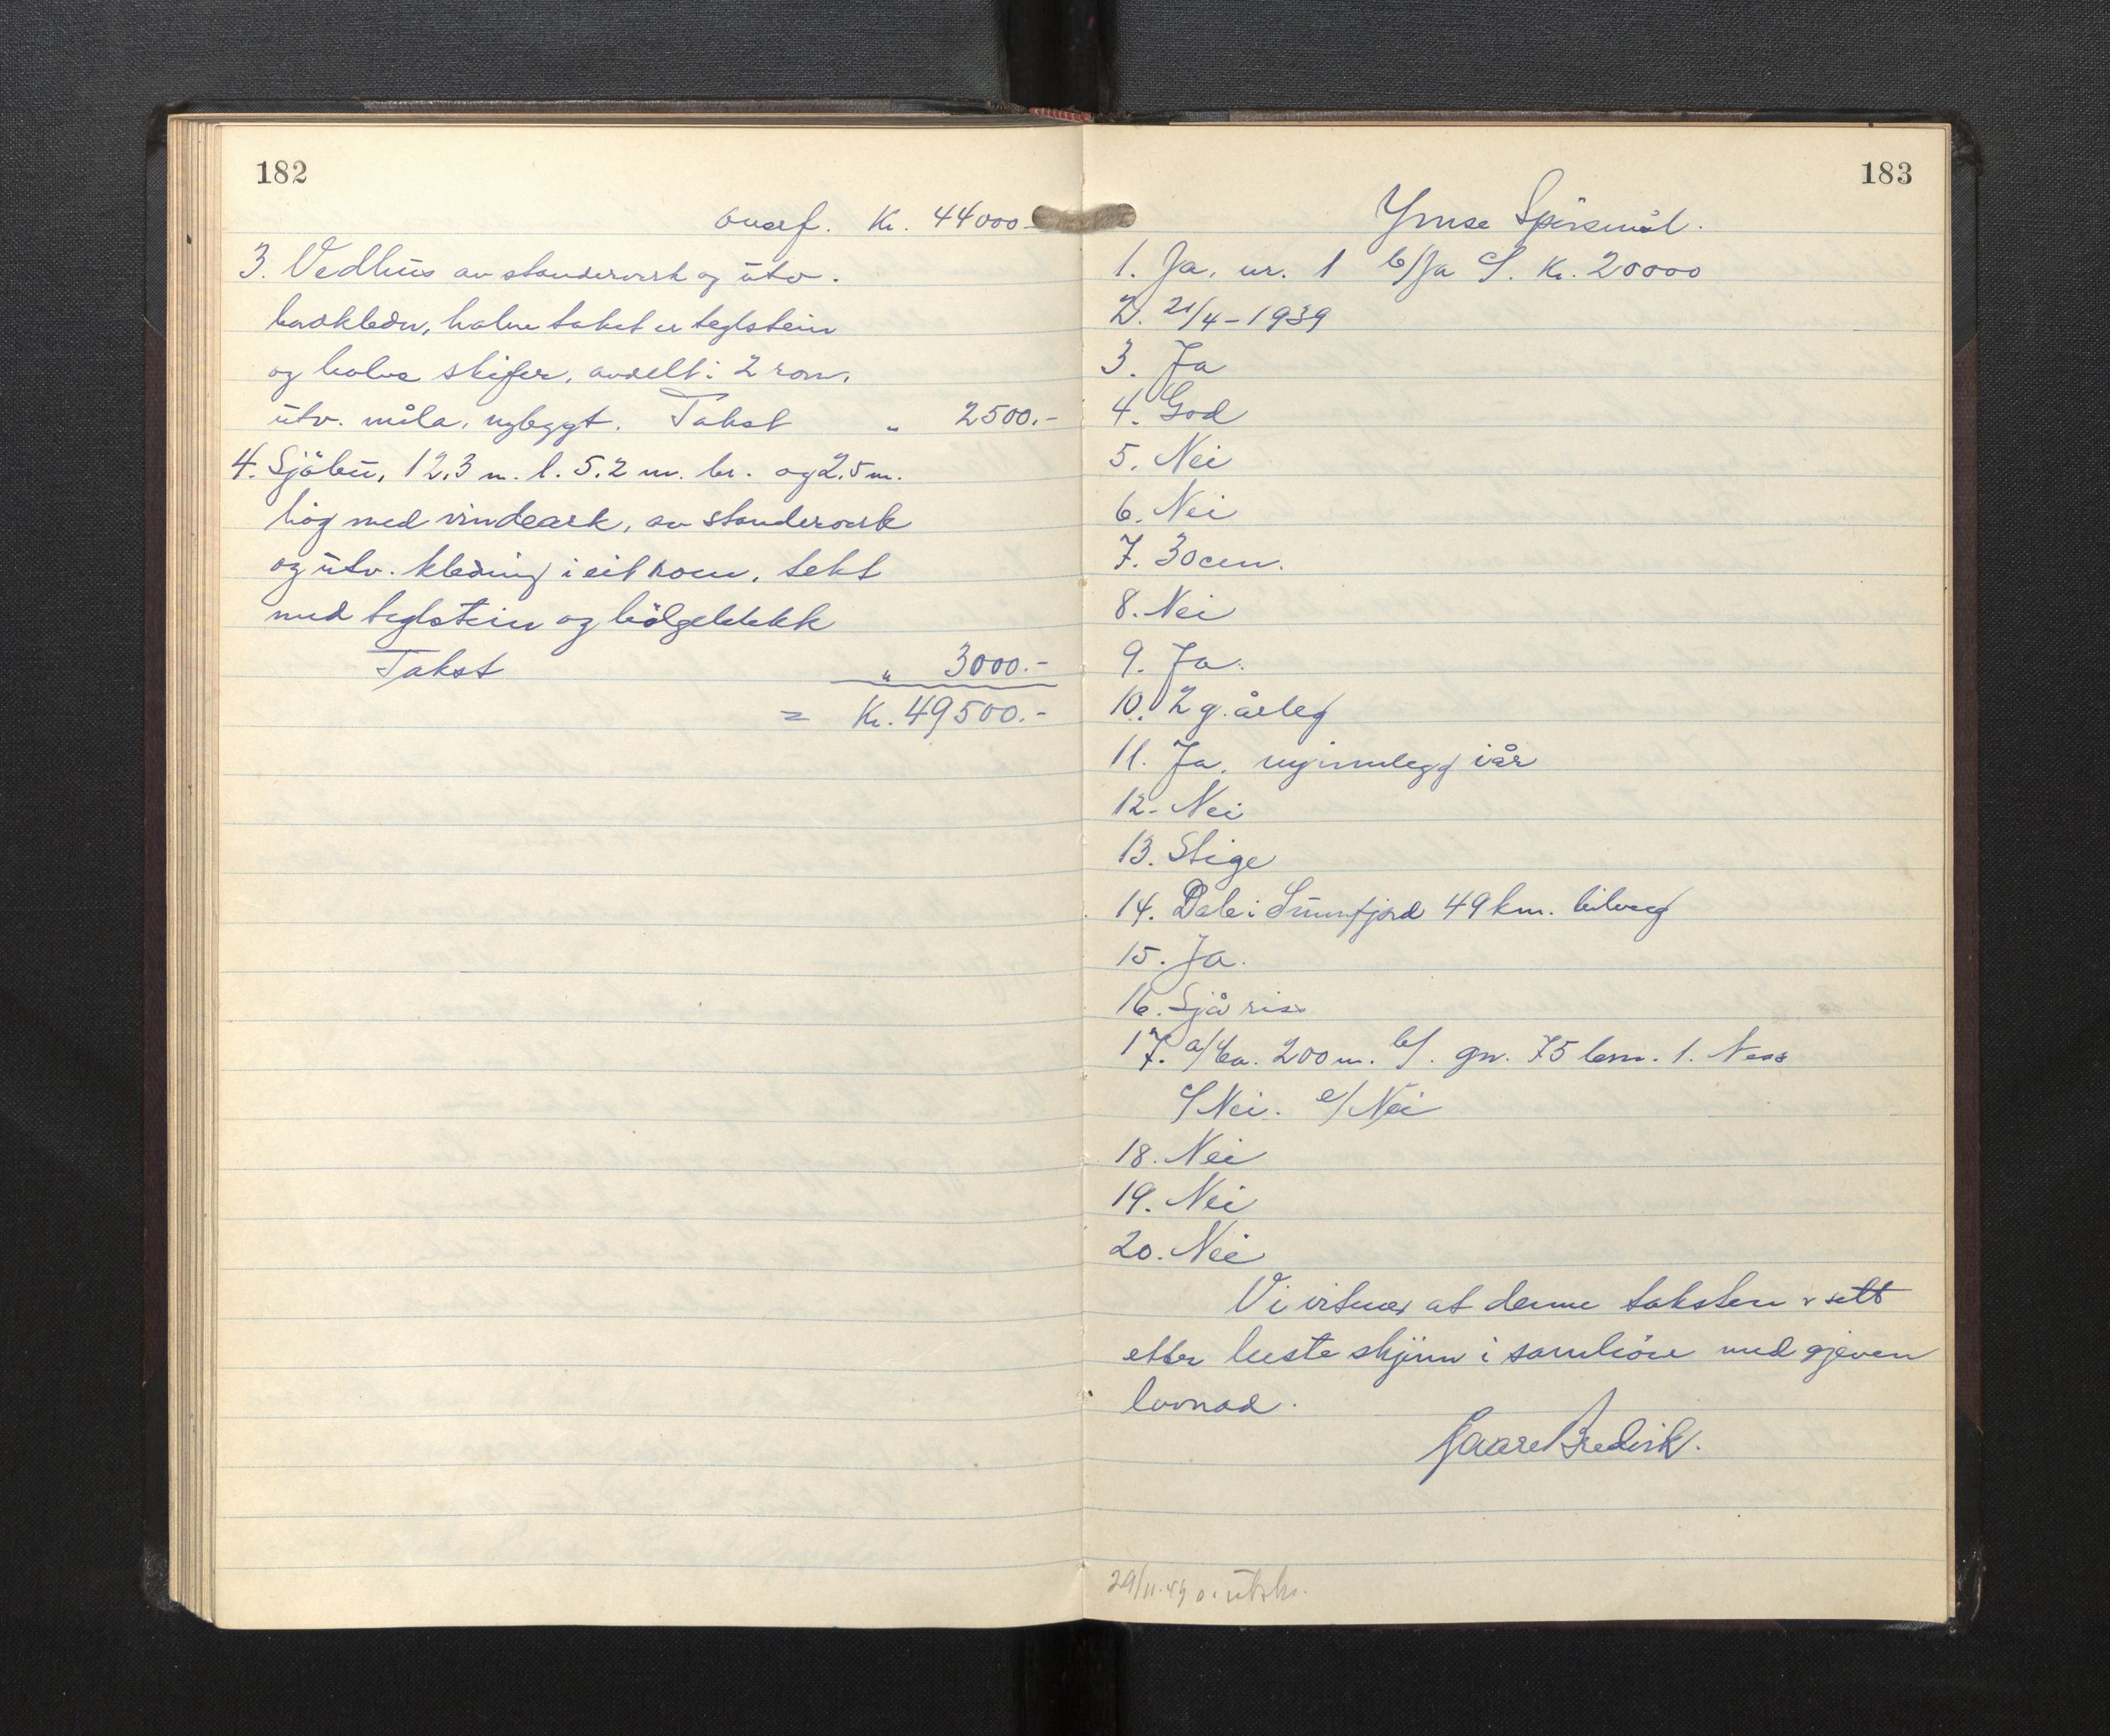 182
overf. Kr. 44000.-
3. Vedhus av standerverk og utv.
bordkledn, halve taket er teglstein
og halve skifer, avdelt i 2 rom,
utv. måla, nybyggt. Takst " 2500.-
4. Sjöbu, 12,3 m. l. 5.2 m. br. og 2,5 m.
hög med vindeark, av standerverk
og utv. kledning i eit rom, tekt
med teglstein og bölgeblekk
Takst " 3000.-
= Kr. 49500.-
183
Ymse Spörsmål.
1. Ja, nr. 1 b/ Ja S. Kr. 20000
2. 21/4-1939
3. Ja
4. God
5. Nei
6. Nei
7. 30 cm.
8. Nei
9. Ja.
10. 2 g. årleg
11. Ja, ny innlegg iår
12- Nei
13. Stige
14. Dale i Sunnfjord 49 km. bilveg
15. Ja.
16. Sjå riss
17. a/ Ca. 200 m. b/. gn. 75 brn. 1. Ness
Nei. e/ Nei
18. Nei
19. Nei
20. Nei
Vi vitnar at denne taksten er sett
etter beste skjönn i samhöve med gjeven
lovnad.
Kaare Bredvik.
29/11.49 s. utskr.